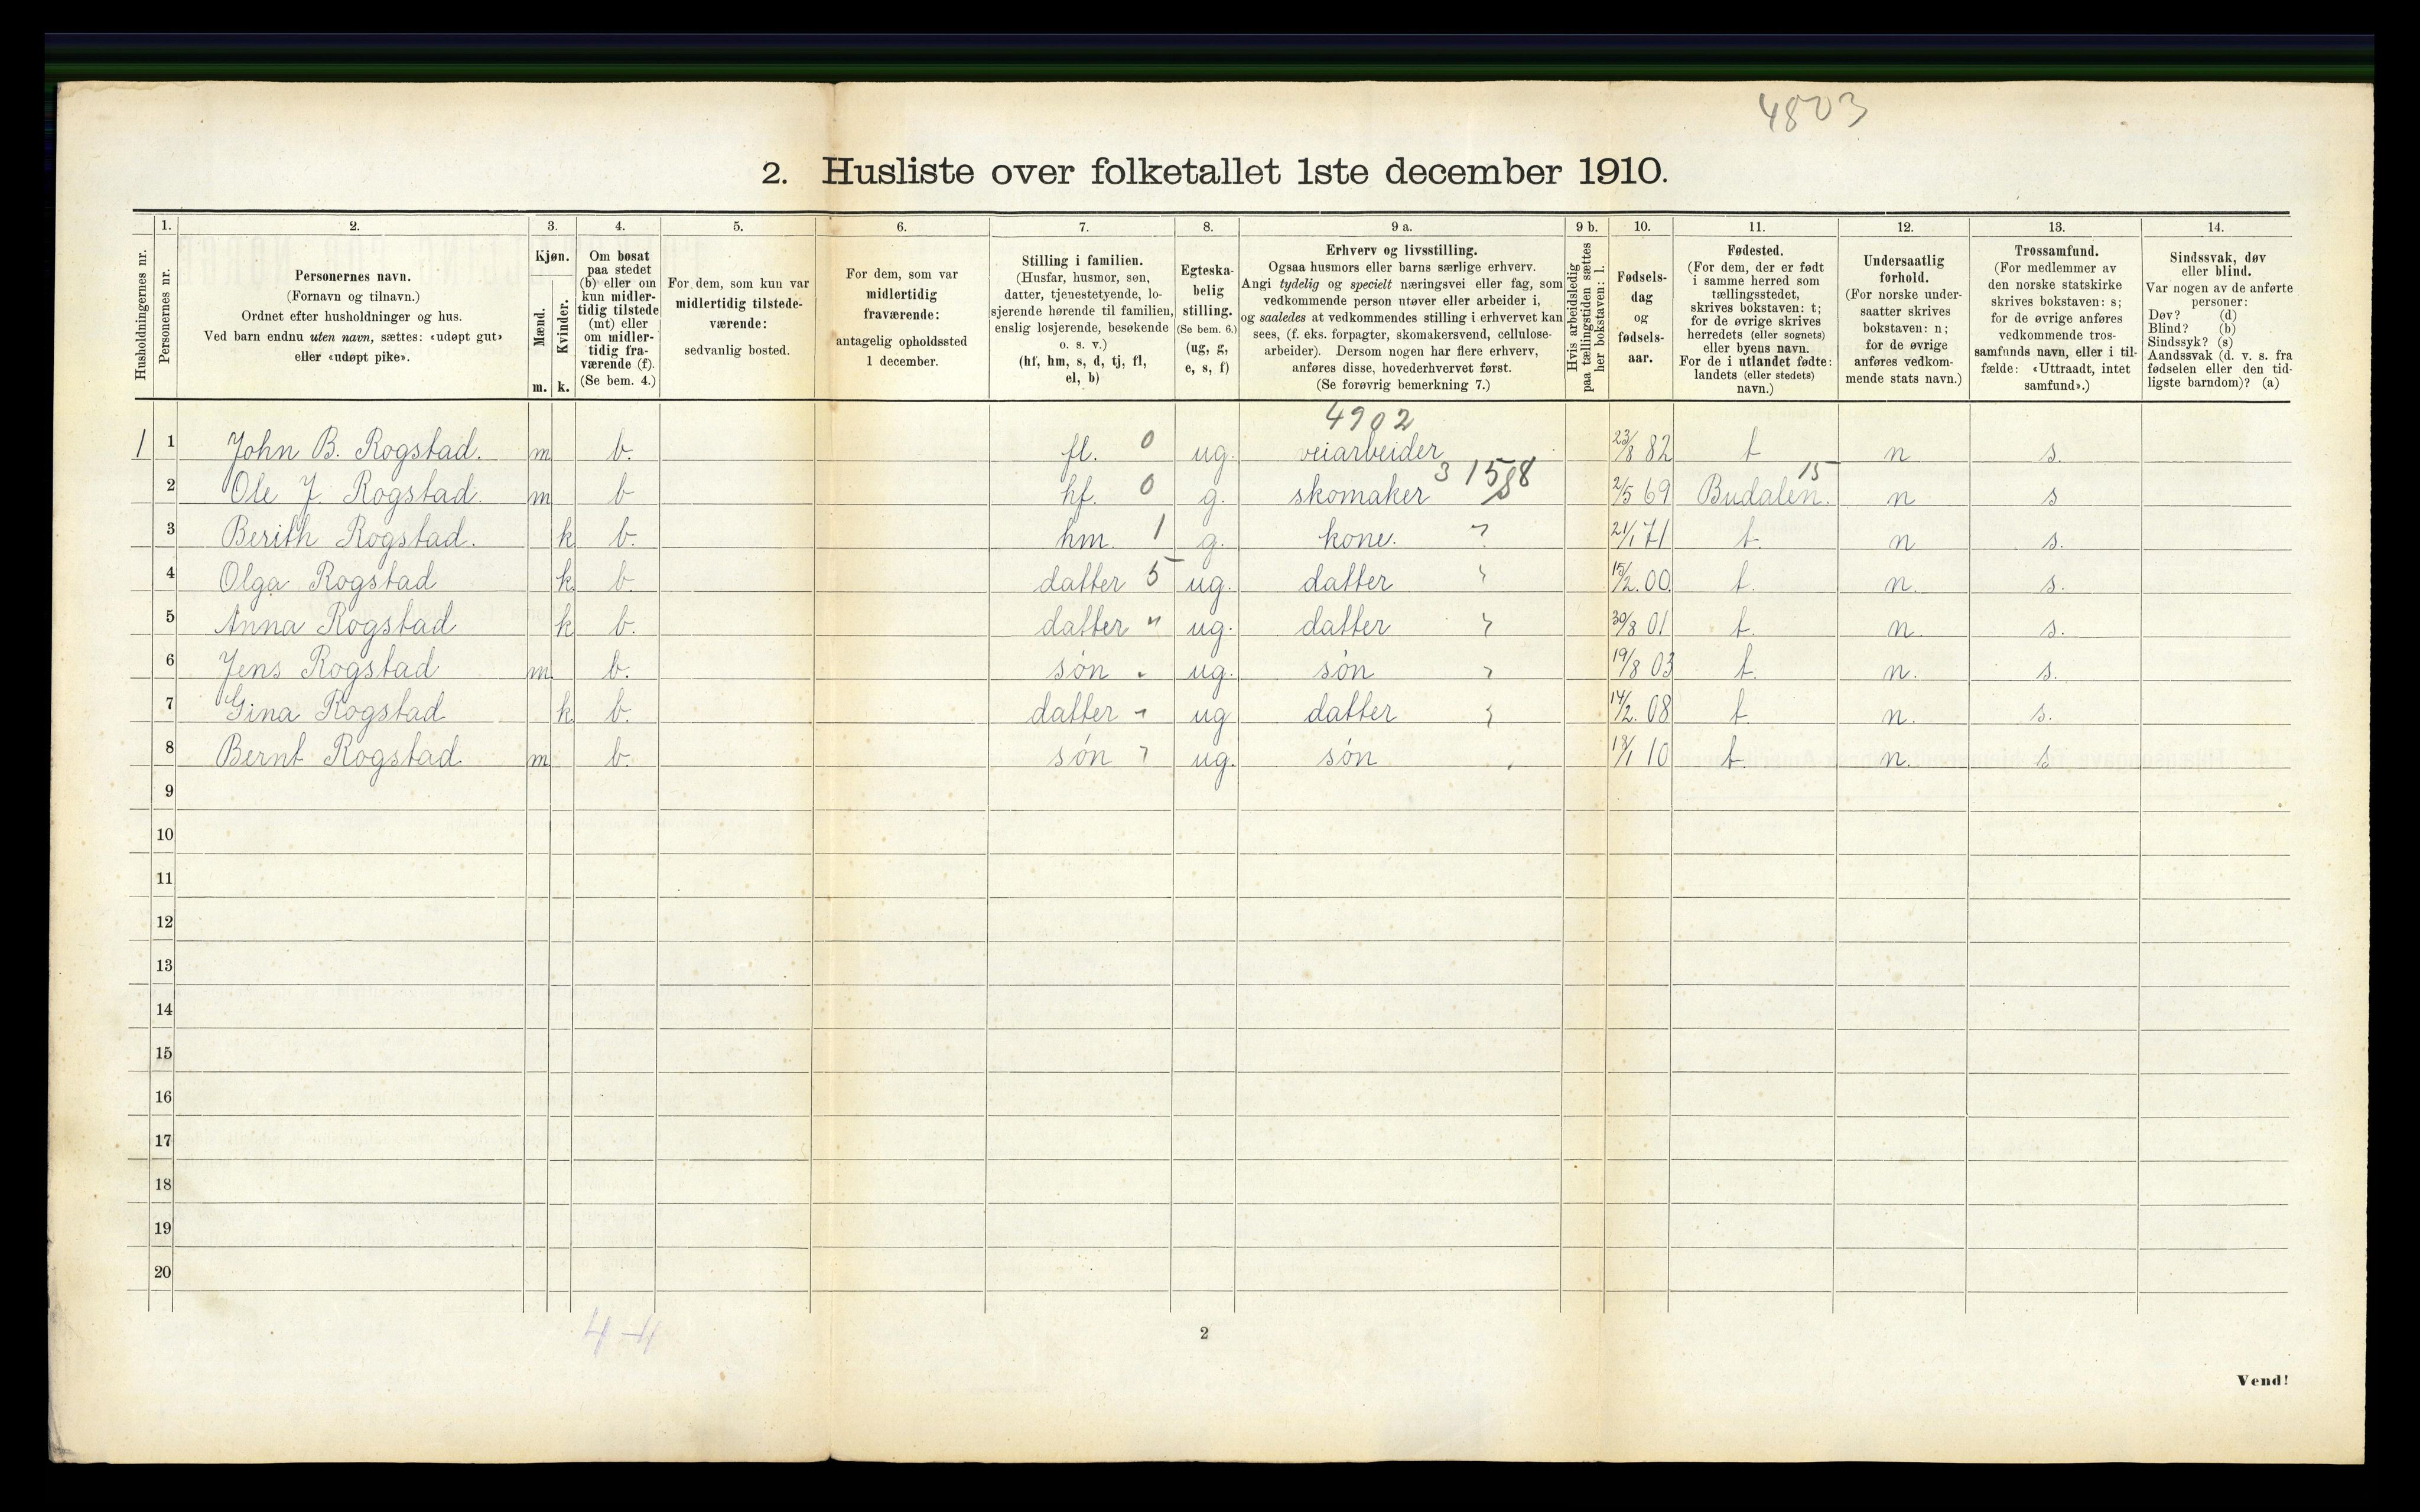 4803
2. Husliste over folketallet 1ste december 1910.
1. 2. 3. 4. 5. 6. 7. 8. 9 a. 9 b. 10. 11. 12. 13. 14.
Husholdningernes nr.
Personernes nr.
Personernes navn.
(Fornavn og tilnavn.)
Ordnet efter husholdninger og hus.
Ved barn endnu uten navn, sættes: «udøpt gut»
eller «udøpt pike».
Kjøn.
Mænd.
Kvinder.
m. k.
Om bosat
paa stedet
(b) eller om
kun midler-
tidig tilstede
(mt) eller
om midler-
tidig fra-
værende (f).
(Se bem. 4.)
For dem, som kun var
midlertidig tilstede-
værende:
sedvanlig bosted.
For dem, som var
midlertidig
fraværende:
antagelig opholdssted
1 december.
Stilling i familien.
(Husfar, husmor, søn,
datter, tjenestetyende, lo-
sjerende hørende til familien,
enslig losjerende, besøkende
o. s. v.)
(hf, hm, s, d, tj, fl,
el, b)
Egteska-
belig
stilling.
(Se bem. 6.)
(ug, g,
e, s, f)
Erhverv og livsstilling.
Ogsaa husmors eller barns særlige erhverv.
Angi tydelig og specielt næringsvei eller fag, som
vedkommende person utøver eller arbeider i,
og saaledes at vedkommendes stilling i erhvervet kan
sees, (f. eks. forpagter, skomakersvend, cellulose-
arbeider). Dersom nogen har flere erhverv,
anføres disse, hovederhvervet først.
(Se forøvrig bemerkning 7.)
Hvis arbeidsledig
paa tællingstiden sættes
her bokstaven: l.
Fødsels-
dag
og
fødsels-
aar.
Fødested.
(For dem, der er født
i samme herred som
tællingsstedet,
skrives bokstaven: t;
for de øvrige skrives
herredets (eller sognets)
eller byens navn.
For de i utlandet fødte:
landets (eller stedets)
navn.)
Undersaatlig
forhold.
(For norske under-
saatter skrives
bokstaven: n;
for de øvrige
anføres vedkom-
mende stats navn.)
Trossamfund.
(For medlemmer av
den norske statskirke
skrives bokstaven: s;
for de øvrige anføres
vedkommende tros-
samfunds navn, eller i til-
fælde: «Uttraadt, intet
samfund».)
Sindssvak, døv
eller blind.
Var nogen av de anførte
personer:
Døv? (d)
Blind? (b)
Sindssyk? (s)
Aandssvak (d. v. s. fra
fødselen eller den tid-
ligste barndom)? (a)
4902
1 1 John B. Rogstad. m b. fl. 0 ug. veiarbeider 23/8 82 t n s.
2 Ole J. Rogstad. m b hf. 0 g. skomaker 3 15 2/5 69 Budalen. 15 n s
3 Berith Rogstad. k b. hm. 1 g. kone. " 21/1 71 t. n s.
4 Olga Rogstad k b. datter 5 ug. datter " 15/2.00 t. n. s.
5 Anna Rogstad k b. datter " ug. datter " 30/8 01 t. n. s.
6 Jens Rogstad m. b. søn " ug. søn " 19/8 03 t. n. s.
7 Gina Rogstad k b. datter " ug datter " 14/2. 08 t. n. s.
8 Bernt Rogstad. m b. søn " ug. søn " 10 t. n. s
9
10
11
12
13
14
15
16
17
18
19
20
4-4
2
Vend!